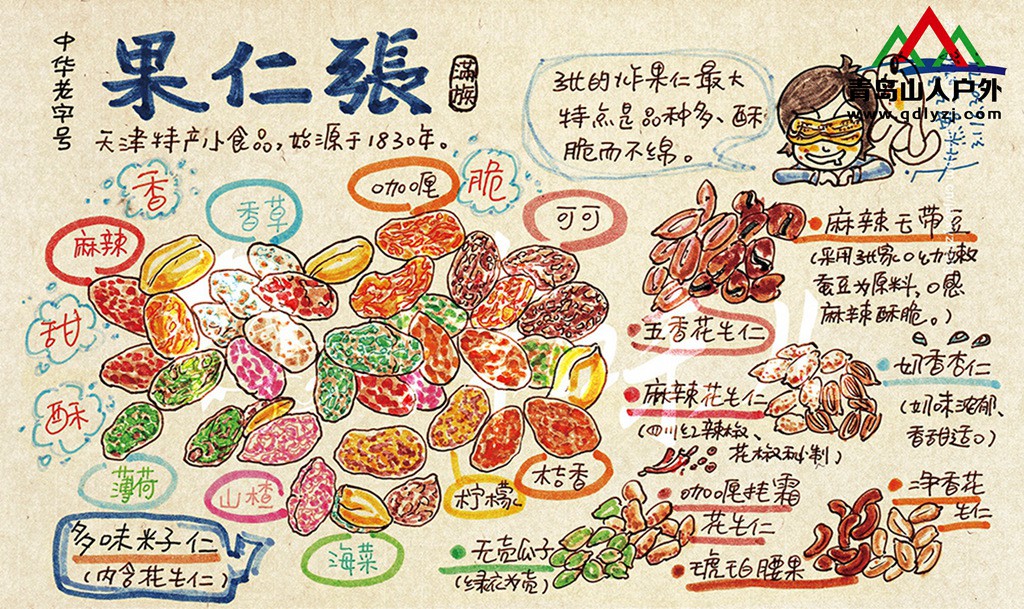 中华老字号
果仁張
滿族
天津特产小食品,始源于1830年。
张的炸果仁最大
特点是品种多、酥
脆而不绵。
青岛山人户外
www.qdlyzj.com
香
香草
咖喱
脆
可可
麻辣
甜
酥
薄荷
山楂
海菜
柠檬
桔香
多味米子仁
(内含花生仁)
麻辣玉带豆
(采用张家口幼嫩
蚕豆为原料,口感
麻辣酥脆。)
五香花生仁
奶香杏仁
(奶味浓郁、
香甜适口)
麻辣花生仁
(四川红辣椒、
花椒秘制)
咖喱挂霜
花生仁
净香花
生仁
无壳瓜子
(绿衣为壳)
琥珀腰果